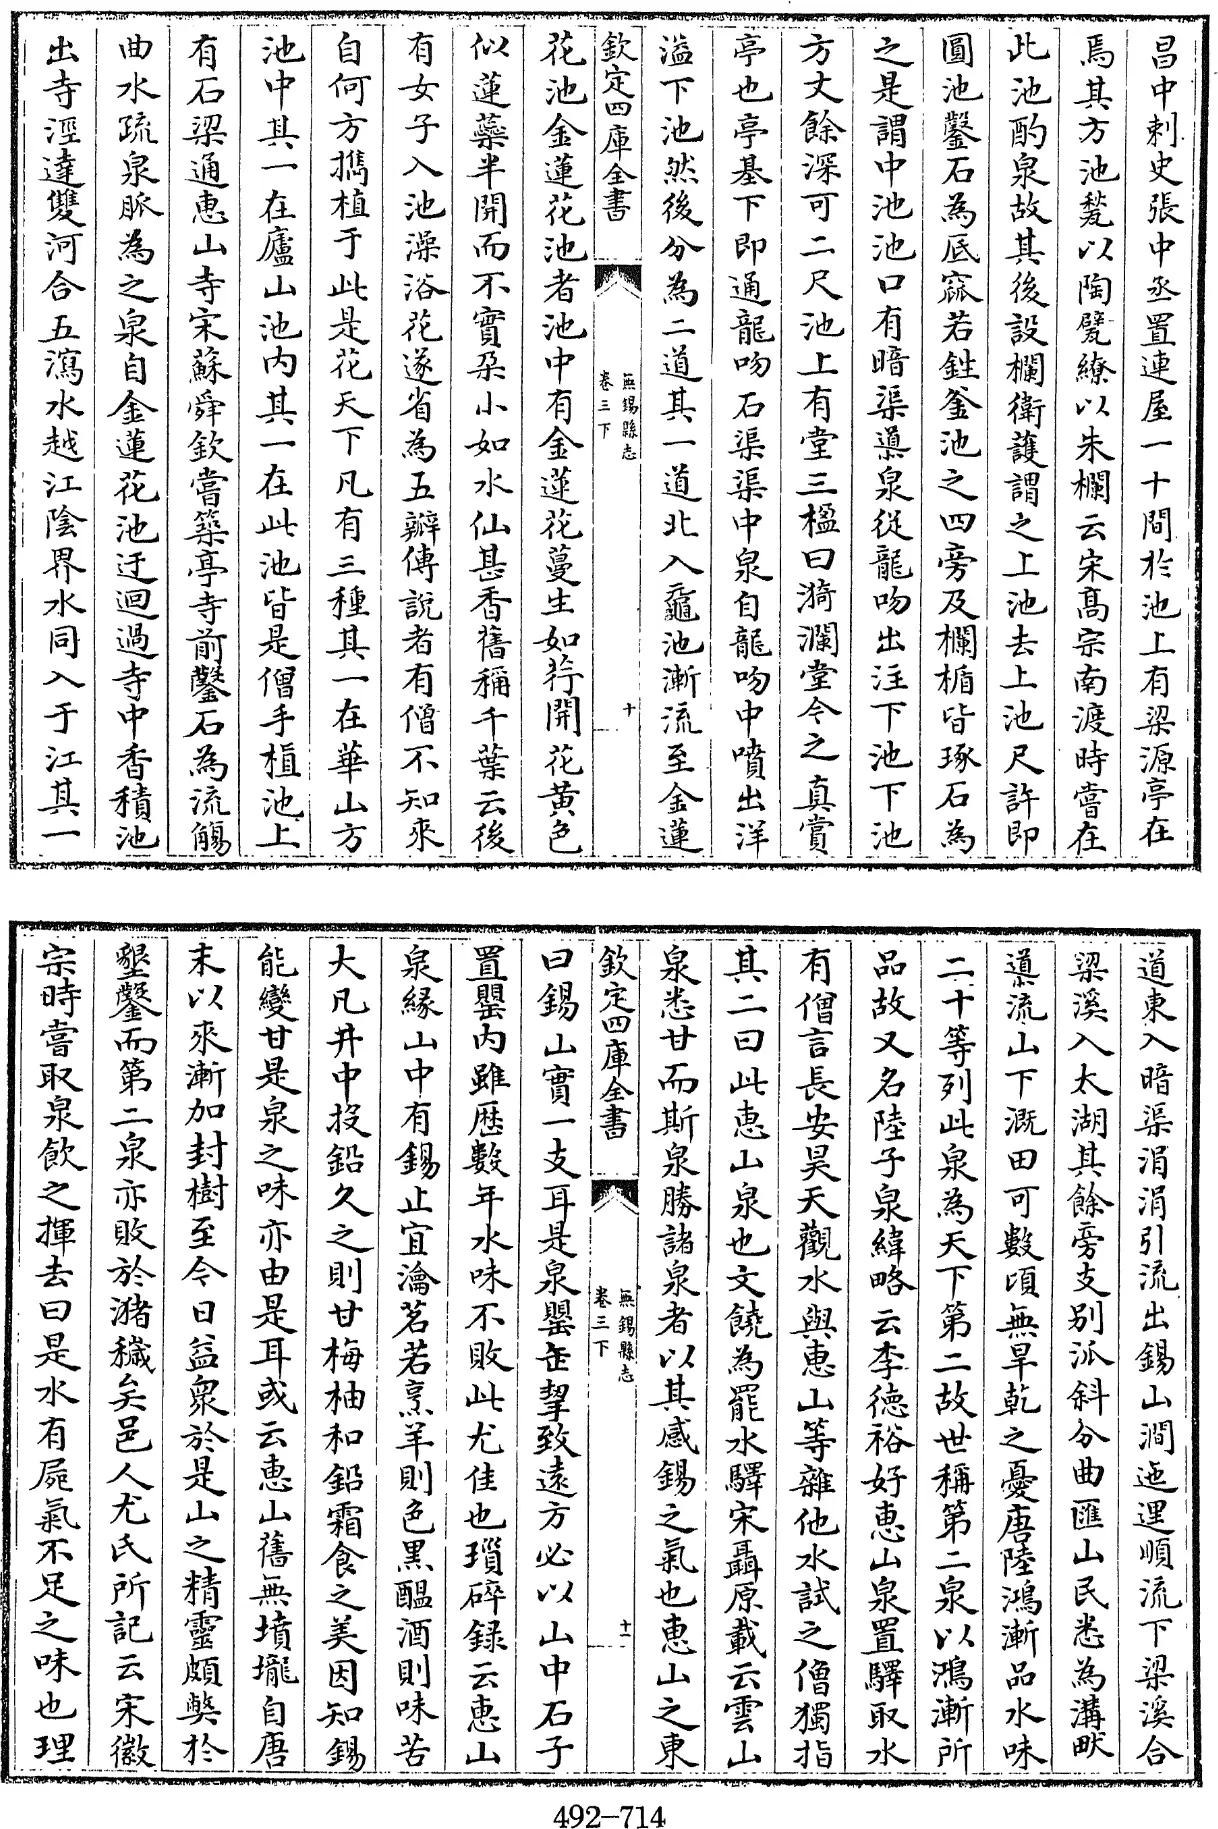 昌中刺史張中丞置連屋一十間於池上有梁源亭在
焉其方池甃以陶甓繚以朱欄云宋髙宗南渡時嘗在
此池酌泉故其後設欄衛護謂之上池去上池尺許即
圓池鑿石為底窳若鉎釜池之四旁及欄楯皆琢石為
之是謂中池池口有暗渠𨗉泉從龍吻出注下池下池
方丈餘深可二尺池上有堂三楹曰漪瀾堂今之真賞
亭也亭基下即通龍吻石渠渠中泉自龍吻中噴出洋
溢下池然後分為二道其一道北入龜池漸流至金蓮
欽定四庫全書
無錫縣志
卷三下
十
花池金蓮花池者池中有金蓮花蔓生如荇開花黄色
似蓮蘂半開而不實朶小如水仙甚香舊稱千葉云後
有女子入池澡浴花遂省為五瓣傳說者有僧不知來
自何方攜植于此是花天下凡有三種其一在華山方
池中其一在廬山池内其一在此池皆是僧手植池上
有石梁通惠山寺宋蘇舜欽嘗築亭寺前鑿石為流觴
曲水疏泉脈為之泉自金蓮花池迂迴過寺中香積池
出寺涇達雙河合五瀉水越江陰界水同入于江其一
道東入暗渠涓涓引流出錫山澗迤逦順流下梁溪合
梁溪入太湖其餘旁支别派斜分曲匯山民悉為溝畎
導流山下溉田可數頃無旱乾之憂唐陸鴻漸品水味
二十等列此泉為天下第二故世稱第二泉以鴻漸所
品故又名陸子泉緯略云李德裕好惠山泉置驛取水
有僧言長安昊天觀水與惠山等雜他水試之僧獨指
其二曰此惠山泉也文饒為罷水驛宋聶原載云雲山
泉悉甘而斯泉勝諸泉者以其感錫之氣也惠山之東
欽定四庫全書
無錫縣志
卷三下
十一
曰錫山實一支耳是泉罌缶挈致遠方必以山中石子
置罌内雖歴數年水味不敗此尤佳也瑣碎録云惠山
泉縁山中有錫止宜瀹茗若烹羊則色黒醖酒則味苦
大凡井中投鉛久之則甘梅柚和鉛霜食之美因知錫
能變甘是泉之味亦由是耳或云惠山舊無墳壠自唐
末以來漸加封樹至今日益衆於是山之精靈頗獘於
墾鑿而第二泉亦敗於瀦穢矣邑人尤氏所記云宋徽
宗時嘗取泉飲之揮去曰是水有屍氣不足之味也理
492-714